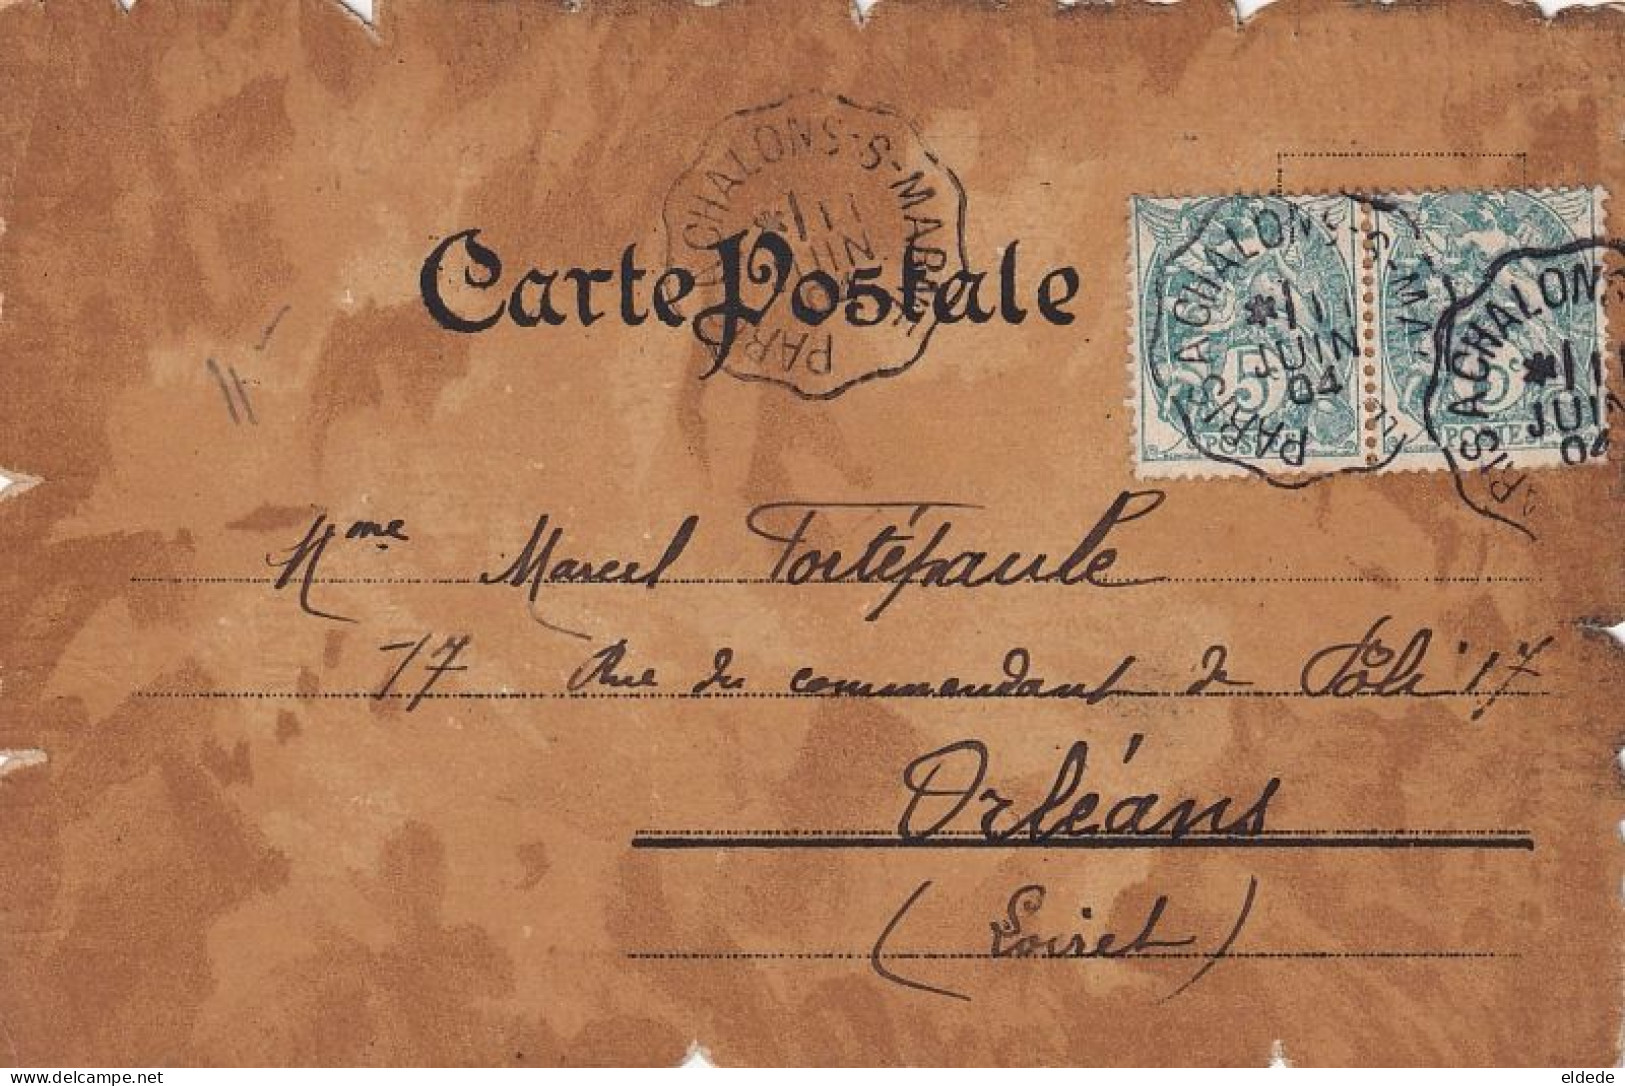 PARIS A CHALONS-S-MARNE
*11
JUIN
04
Carte Postale
PARIS A CHALONS-S-M
*11
JUIN
04
5
POSTE
PARIS A CHALONS
*11
JUIN
04
5c
POSTE
11-
Mme Marcel Fortépaule
17 Rue du commandant de Poli 17
Orléans
(Loiret)
delcampe.net
eldede